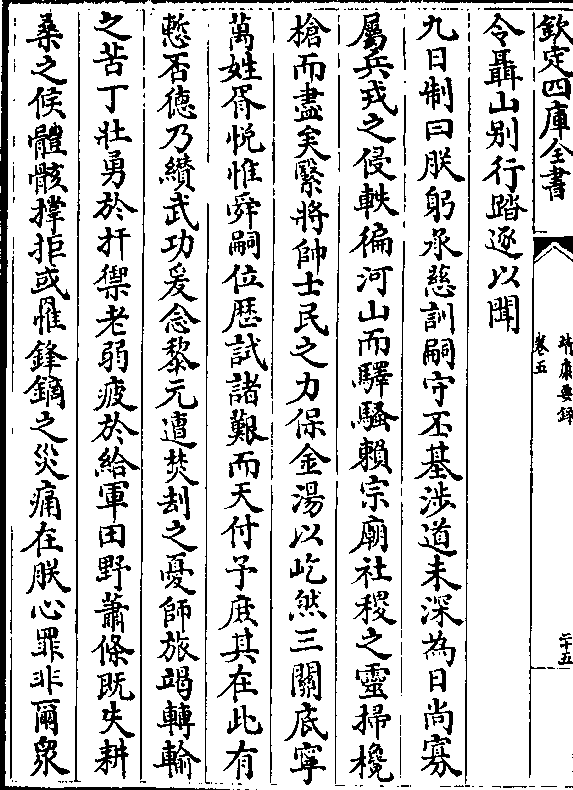 欽定四庫全書
靖康要錄
卷五
二十五
令聶山别行踏逐以聞
九日制曰朕躬承慈訓嗣守丕基涉道未深為日尚寡
屬兵戎之侵軼徧河山而驛騷賴宗廟社稷之靈掃欃
槍而盡矣繄將帥士民之力保金湯以屹然三關底寧
萬姓胥悦惟舜嗣位歴試諸艱而天付予庶其在此有
慙否德乃纘武功爰念黎元遭焚刦之憂師旅竭轉輸
之苦丁壯勇於扞禦老弱疲於給軍田野蕭條既失耕
桑之候體骸撑拒或罹鋒鏑之災痛在朕心罪非爾衆